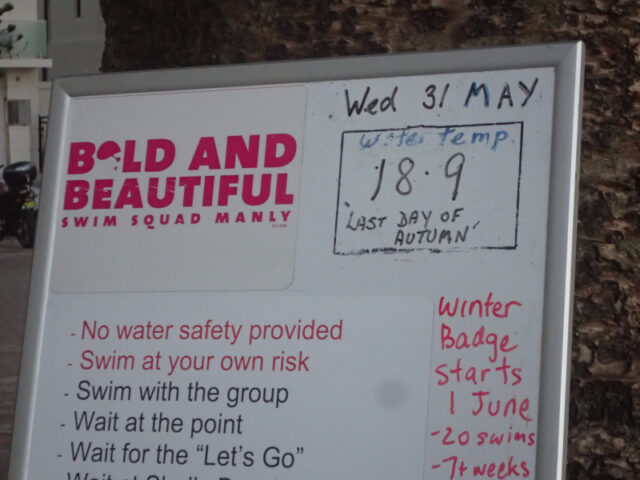 BOLD AND
BEAUTIFUL
SWIM SQUAD MANLY
Wed 31 MAY
Water Temp.
18.9
'LAST DAY OF
AUTUMN'
- No water safety provided
- Swim at your own risk
- Swim with the group
- Wait at the point
- Wait for the “Let's Go”
Winter
Badge
starts
1 June
-20 swims
-7+ weeks